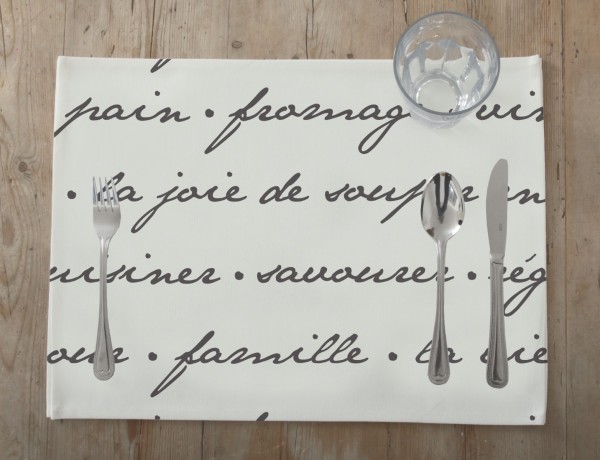 pain • fromag vin
• la joie de souper en
uisiner • savourer • rég
oeur • famille • la vie